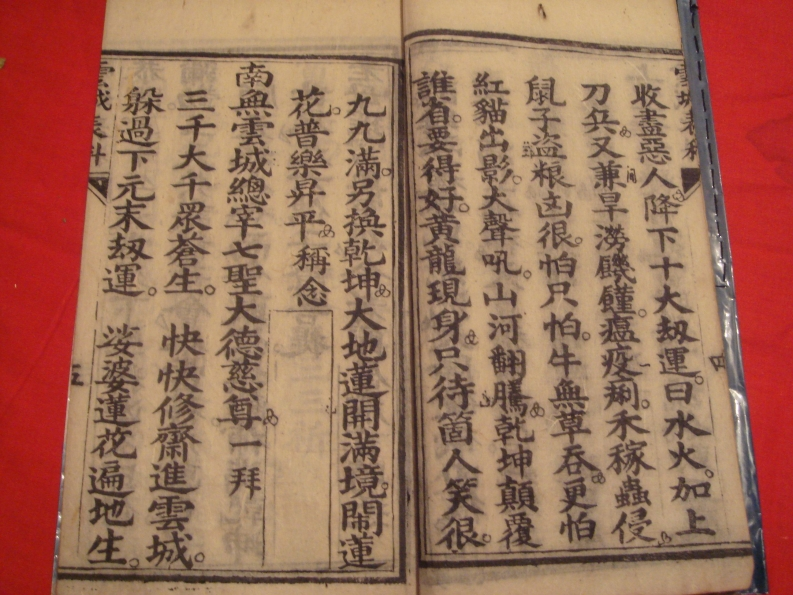 收盡惡人降下十大刼運。曰水火。加上
刀兵又兼旱澇饑饉。瘟疫痢。禾稼蟲侵
鼠子盗粮凶很。怕只怕。牛無草吞。更怕
紅貓出影。大聲吼。山河翻騰乾坤顛覆
誰自。要得好。黃龍現身。只待箇人笑很。
九九滿。另換乾坤大地蓮開滿境。鬧蓮
花普樂昇平稱念
南無雲城總宰七聖大德慈尊一拜
三千大千眾蒼生。快快修齋進雲城。
躲過下元末刼運。娑婆蓮花遍地生。
雲城表科
五